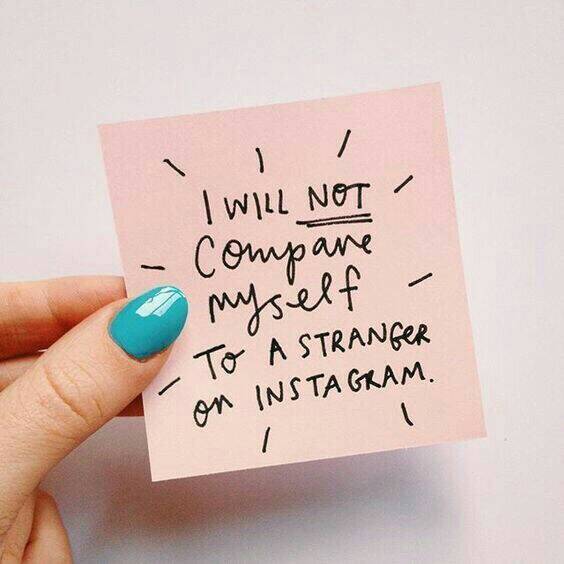 I WILL NOT
Compare
myself
TO A STRANGER
on INSTAGRAM.